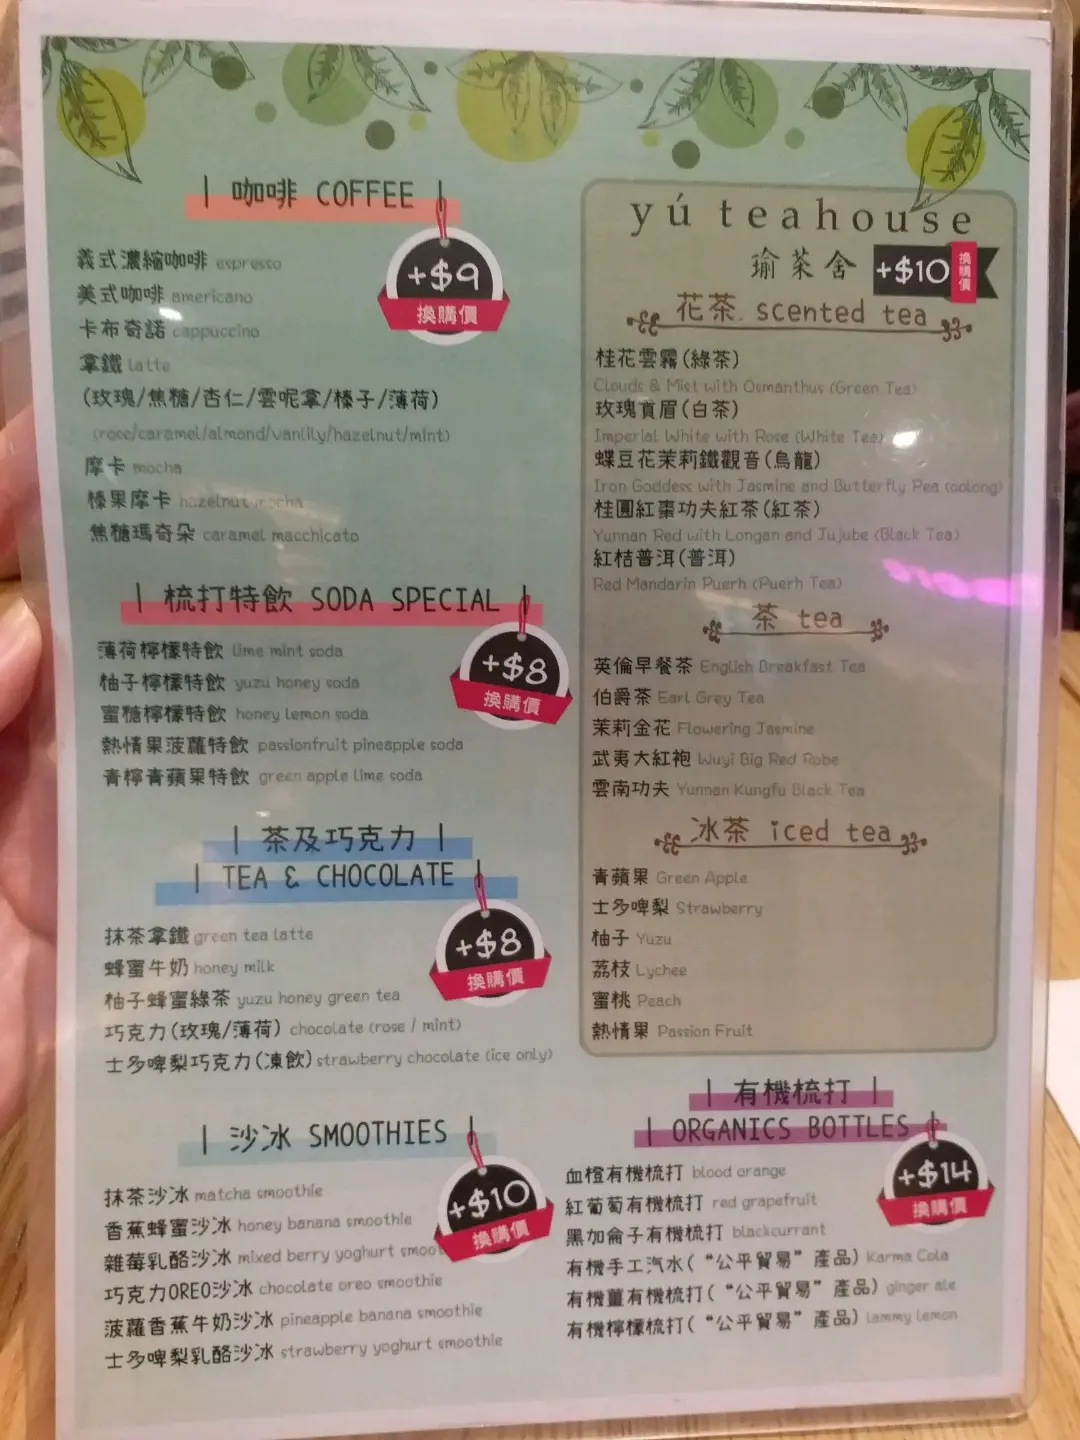 | 咖啡 COFFEE |
+$9
換購價
義式濃縮咖啡 espresso
美式咖啡 americano
卡布奇諾 cappuccino
拿鐵 latte
(玫瑰/焦糖/杏仁/雲呢拿/榛子/薄荷)
(rose/caramel/almond/vanlily/hazelnut/mint)
摩卡 mocha
榛果摩卡 hazelnut mocha
焦糖瑪奇朵 caramel macchicato
| 梳打特飲 SODA SPECIAL |
+$8
換購價
薄荷檸檬特飲 lime mint soda
柚子檸檬特飲 yuzu honey soda
蜜糖檸檬特飲 honey lemon soda
熱情果菠蘿特飲 passionfruit pineapple soda
青檸青蘋果特飲 green apple lime soda
| 茶及巧克力 |
| TEA & CHOCOLATE |
+$8
換購價
抹茶拿鐵 green tea latte
蜂蜜牛奶 honey milk
柚子蜂蜜綠茶 yuzu honey green tea
巧克力(玫瑰/薄荷) chocolate (rose / mint)
士多啤梨巧克力(凍飲) strawberry chocolate (ice only)
| 沙冰 SMOOTHIES |
+$10
換購價
抹茶沙冰 matcha smoothie
香蕉蜂蜜沙冰 honey banana smoothie
雜莓乳酪沙冰 mixed berry yoghurt smoot
巧克力OREO沙冰 chocolate oreo smoothie
菠蘿香蕉牛奶沙冰 pineapple banana smoothie
士多啤梨乳酪沙冰 strawberry yoghurt smoothie
yú teahouse
瑜茶舍 +$10 換購價
花茶 scented tea
桂花雲霧(綠茶)
Clouds & Mist with Osmanthus (Green Tea)
玫瑰貢眉(白茶)
Imperial White with Rose (White Tea)
蝶豆花茉莉鐵觀音(烏龍)
Iron Goddess with Jasmine and Butterfly Pea (oolong)
桂圓紅棗功夫紅茶(紅茶)
Yunnan Red with Longan and Jujube (Black Tea)
紅桔普洱(普洱)
Red Mandarin Puerh (Puerh Tea)
茶 tea
英倫早餐茶 English Breakfast Tea
伯爵茶 Earl Grey Tea
茉莉金花 Flowering Jasmine
武夷大紅袍 Wuyi Big Red Robe
雲南功夫 Yunnan Kungfu Black Tea
冰茶 iced tea
青蘋果 Green Apple
士多啤梨 Strawberry
柚子 Yuzu
荔枝 Lychee
蜜桃 Peach
熱情果 Passion Fruit
| 有機梳打 |
| ORGANICS BOTTLES |
+$14
換購價
血橙有機梳打 blood orange
紅葡萄有機梳打 red grapefruit
黑加侖子有機梳打 blackcurrant
有機手工汽水(“公平貿易”產品) Karma Cola
有機薑有機梳打(“公平貿易”產品) ginger ale
有機檸檬梳打(“公平貿易”產品) lammy lemon